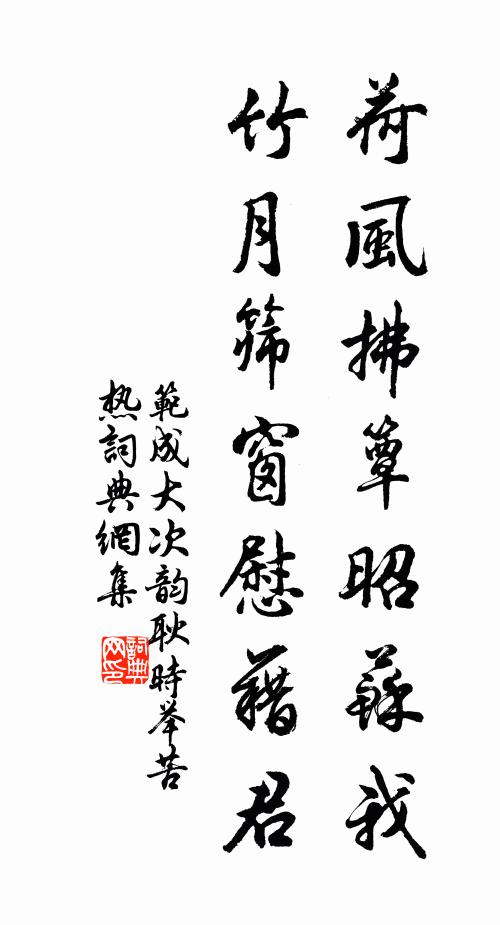 荷風拂簟昭蘇我
竹月篩窗慰藉君
範成大次韵耿時举苦
热詞典網集
詞典网印